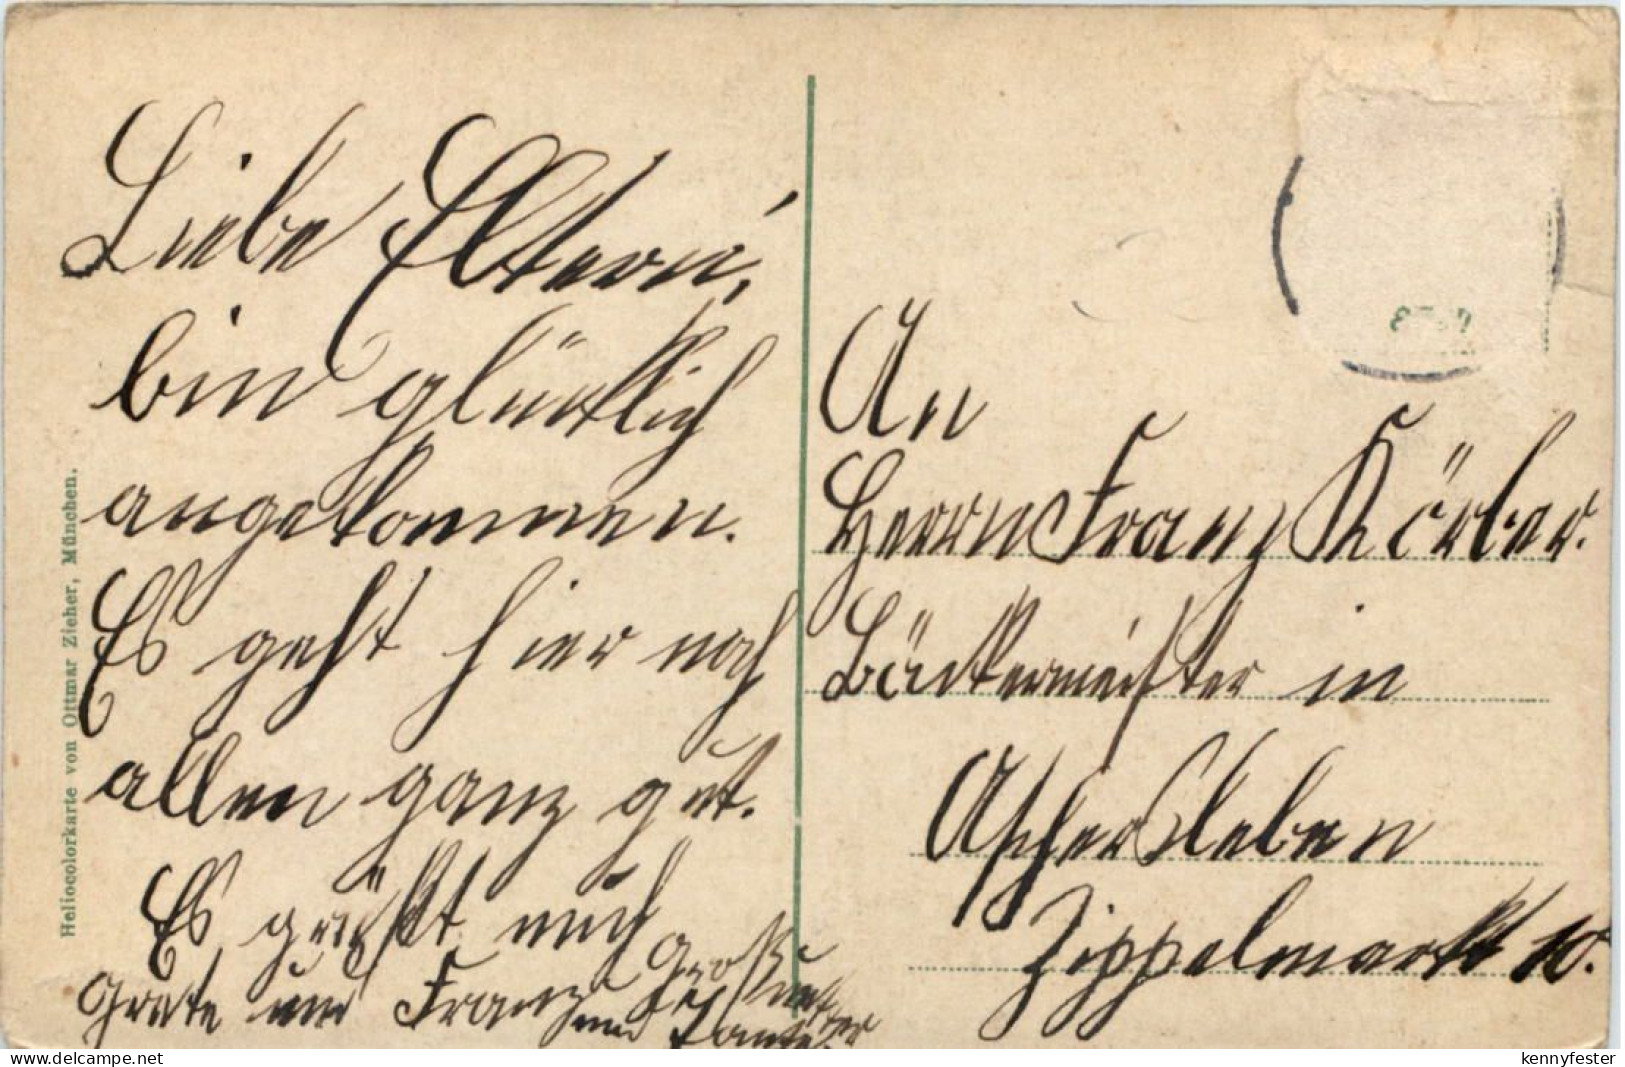 Liebe Eltern,
bin glücklich
angekommen.
Es geht hier noch
allen ganz gut.
Es grüßt euch
Grete und Franz
Großmutter
und Tante.
An
Herrn Franz Körber.
Bäckermeister in
Aschersleben
Zippelmarkt 10.
Heliocolorkarte von Ottmar Zieher, München.
www.delcampe.net
kennyfester